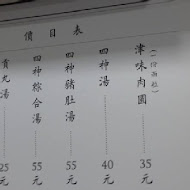 價目表
津味肉圓(一份兩粒)……35元
四神湯……40元
四神豬肚湯……55元
四神綜合湯……55元
貢丸湯……25元